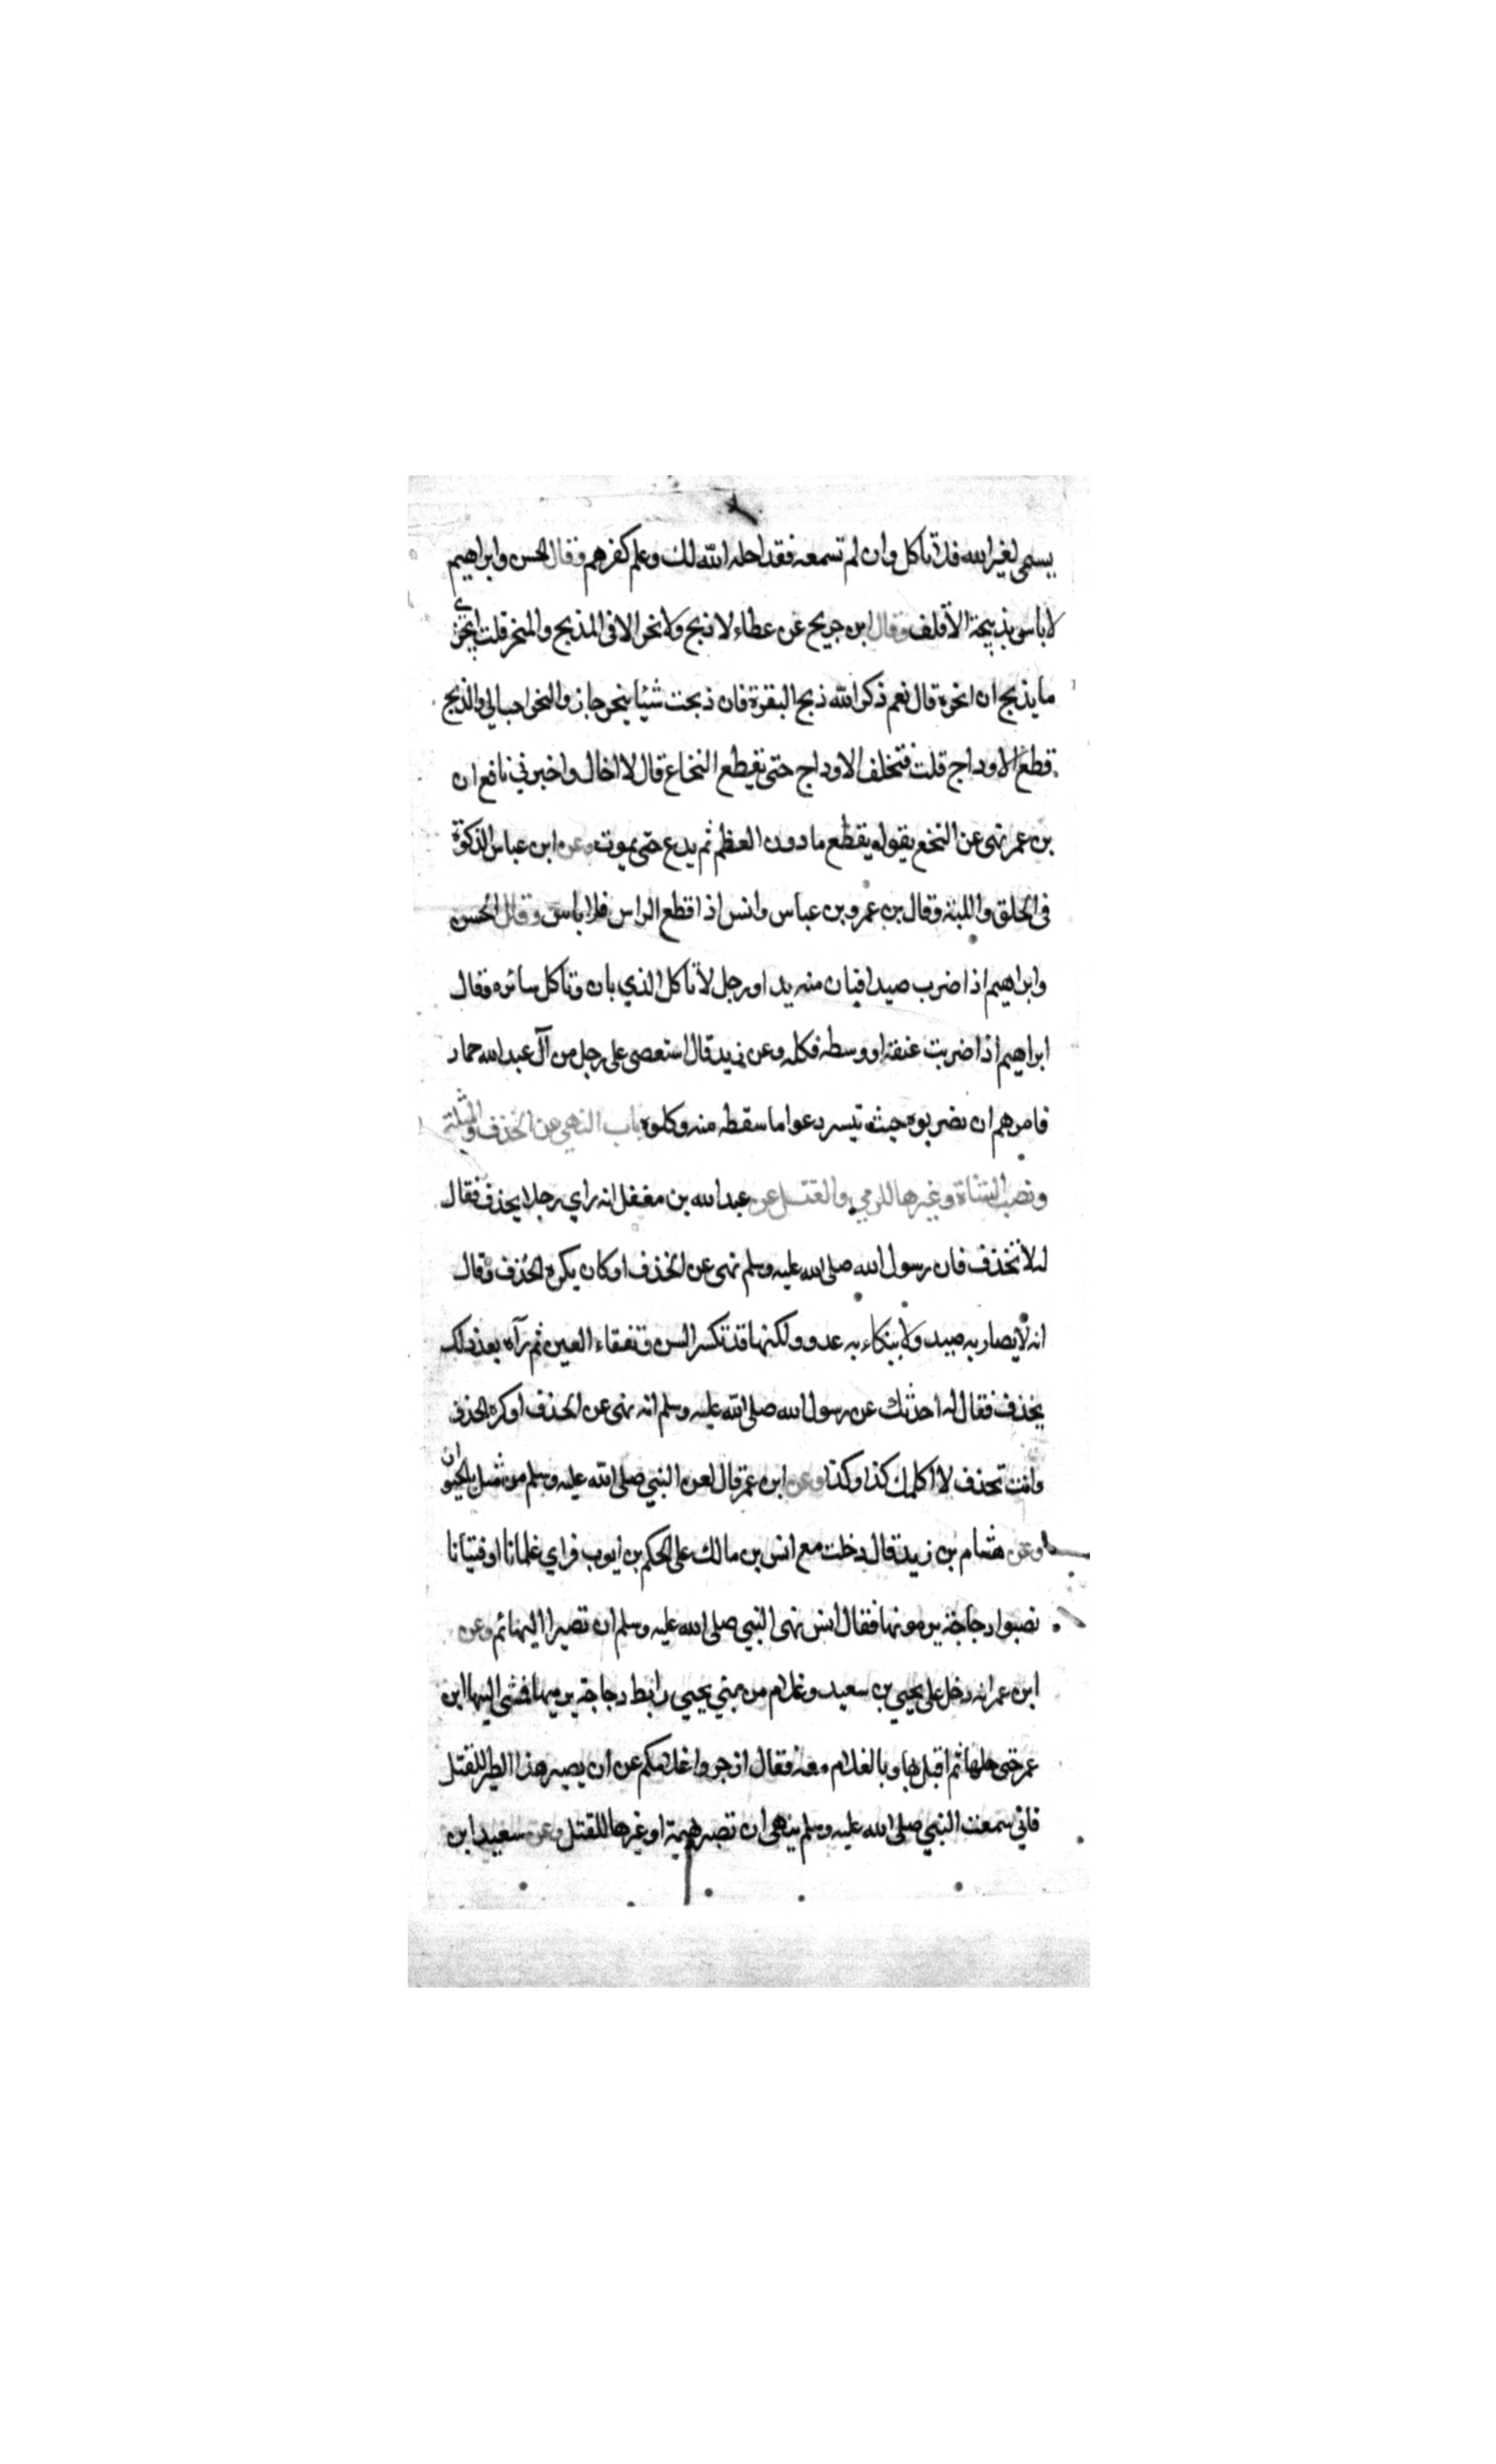 يسمى لغير الله فلا تاكل وان لم تسمعه فقد احله الله لك وعلم كفرهم وقال الحسن وابراهيم
لا باس بذبيحة الاقلف وقال ابن جريج عن عطاء لا ذبح ولا نحر الا في المذبح والمنحر قلت ايجزي
ما يذبح ان انحره قال نعم ذكر الله ذبح البقرة فان ذبحت شيئا ينحر جاز والنحر احب الي والذبح
قطع الاوداج قلت فتخلف الاوداج حتى تقطع النخاع قال لا اخال واخبرني نافع ان
بن عمر نهى عن النخع يقول يقطع ما دون العظم ثم يدع حتى يموت وعن ابن عباس الذكوة
في الحلق واللبة وقال بن عمر وبن عباس وانس اذا قطع الراس فلا باس وقال الحسن
وابراهيم اذا ضرب صيدا فبان منه يد او رجل لا تاكل الذي بان وتاكل سائره وقال
ابراهيم اذا ضربت عنقه او وسطه فكله وعن زيد قال استعصى على رجل من آل عبد الله حمار
فامرهم ان يضربوه حيث تيسر دعوا ما سقط منه وكلوه باب النهي عن الخذف والمثلة
ونصب الشاة وغيرها للرمي والقتل عن عبد الله بن مغفل انه راي رجلا يخذف فقال
له لا تخذف فان رسول الله صلى الله عليه وسلم نهى عن الخذف او كان يكره الخذف وقال
انه لا يصاد به صيد ولا ينكاء به عدو ولكنها قد تكسر السن وتفقاء العين ثم رآه بعد ذلك
يخذف فقال له احدثك عن رسول الله صلى الله عليه وسلم انه نهى عن الخذف او كره الخذف
وانت تخذف لا اكلمك كذا وكذا وعن ابن عمر قال لعن النبي صلى الله عليه وسلم من مثل بالحيوان
وعن هشام بن زيد قال دخلت مع انس بن مالك على الحكم بن ايوب فراي غلمانا او فتيانا
نصبوا دجاجة يرمونها فقال انس نهى النبي صلى الله عليه وسلم ان تصبر البهائم وعن
ابن عمر انه دخل على يحيى بن سعيد وغلام من بني يحيى رابط دجاجة يرميها فمشى اليها ابن
عمر حتى حلها ثم اقبل بها وبالغلام معه فقال ازجروا غلامكم عن ان يصبر هذا الطير للقتل
فاني سمعت النبي صلى الله عليه وسلم ينهى ان تصبر بهيمة او غيرها للقتل وعن سعيد ابن